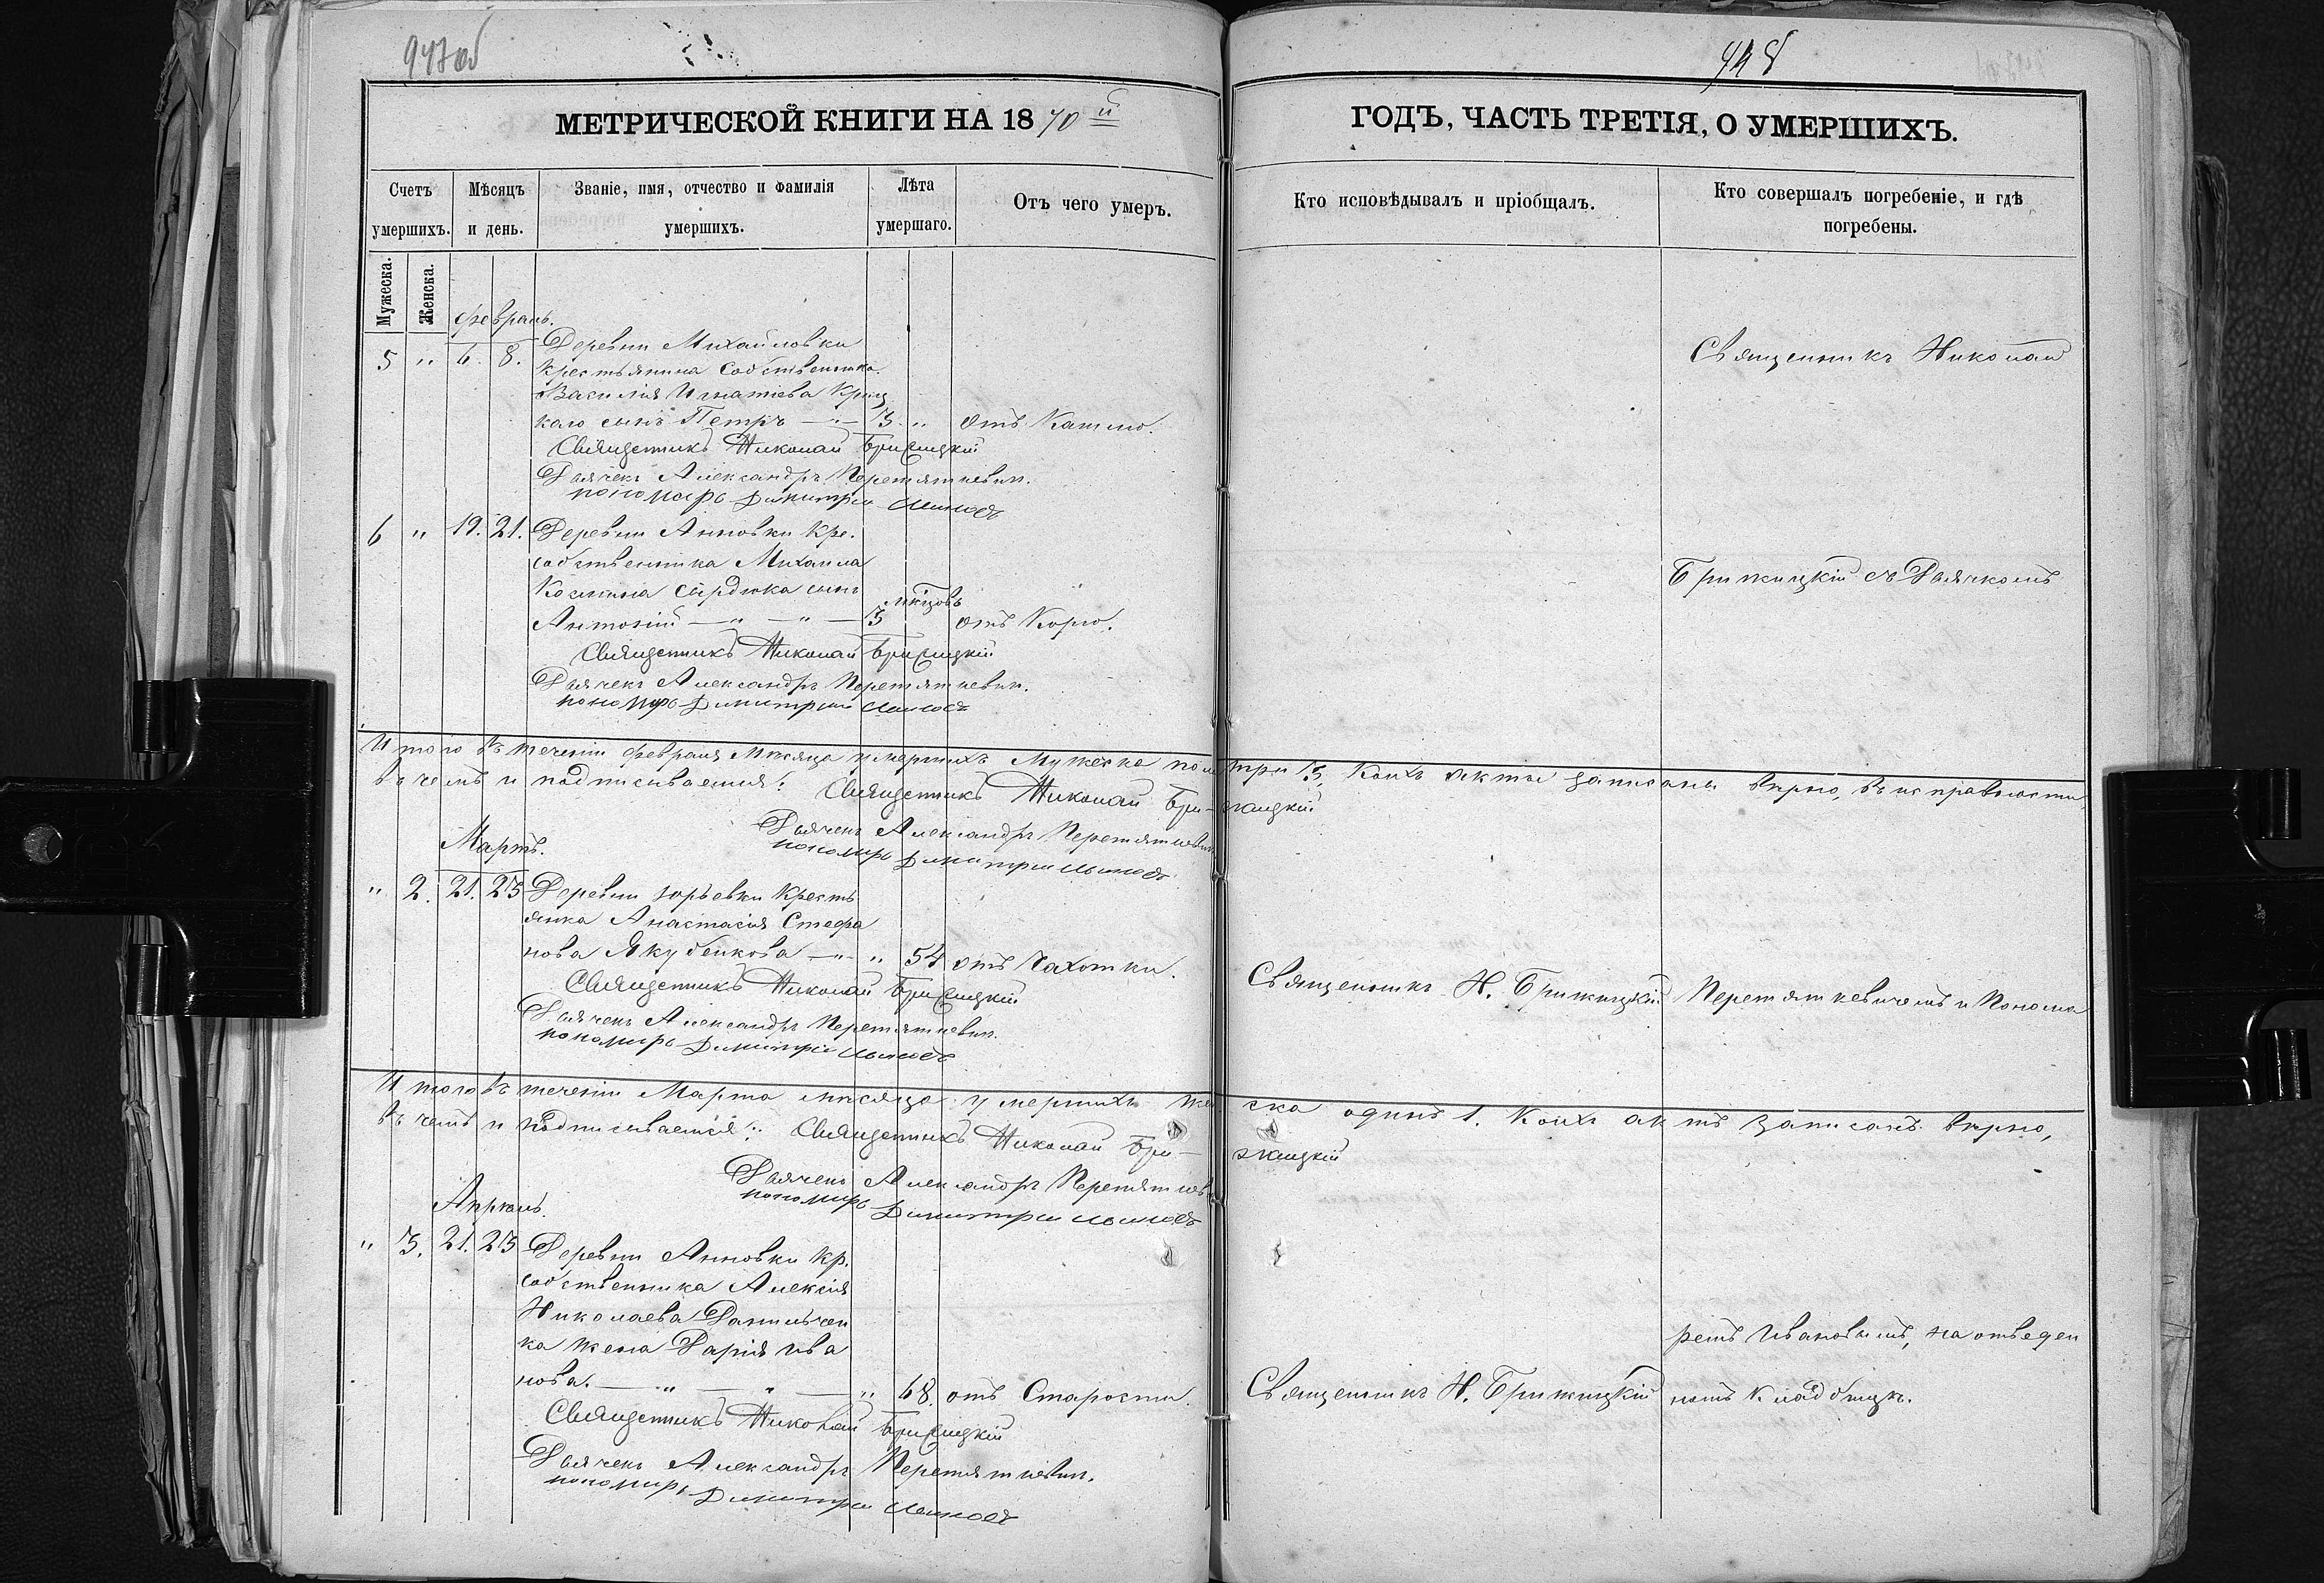 947об
948
МЕТРИЧЕСКОЙ КНИГИ НА 1870й
ГОДЪ, ЧАСТЬ ТРЕТІЯ, О УМЕРШИХЪ.
Счетъ умершихъ.
Мѣсяцъ и день.
Званіе, имя, отчество и фамилія умершихъ.
Лѣта умершаго.
Отъ чего умеръ.
Кто исповѣдывалъ и пріобщалъ.
Кто совершалъ погребеніе, и гдѣ погребены.
Мужеска.
Женска.
Февраль.
5 " 6. 8. Деревни Михайловки
крестьянина собственника
Василія Игнатіева Криц
каго сынъ Петръ — " — 3 " отъ Кашлю.
Священникъ Николай Брижицкій
Дьячекъ Александръ Перетяткевич.
пономарь Димитрій
6 " 19. 21. Деревни Анновки Кре.
собственника Михаила
Козмина Сырдюка сынъ
Антоній — " — " — 3 мѣсяцовъ отъ Корю.
Священникъ Николай Брижицкій
Дьячекъ Александръ Перетяткевич.
пономарь Димитрій
Итого въ теченіи февраля мѣсяца умершихъ Мужеска пола три 3, Коихъ акты записаны вѣрно, въ исправности
въ чемъ и подписываемся: Священникъ Николай Бри-жицкій
Дьячекъ Александръ Перетяткевич
пономарь Димитрій
Мартъ.
" 2. 21. 23 Деревни Юрьевки Кресть
янка Анастасія Стефа
нова Якубенкова — " — " 54 отъ Чахотки.
Священникъ Николай Брижицкій
Дьячекъ Александръ Перетяткевич.
пономарь Димитрій
Итого въ теченіи Марта мѣсяца умершихъ Женска одинъ 1. Коихъ актъ записанъ вѣрно,
въ чемъ и подписываемся: Священникъ Николай Бри-жицкій
Дьячекъ Александръ Перетяткев
пономарь Димитрій
Апрѣль.
" 3. 21. 23 Деревни Анновки Кр.
собственника Алексія
Николаева Данильчен
ка жена Дарія Ива
нова. — " — " — " 68. отъ Старости.
Священникъ Николай Брижицкій
Дьячекъ Александръ Перетяткевич.
пономарь Димитрій
Священникъ Н. Брижицкій
Священникъ Н. Брижицкій
Священникъ Николай
Брижицкій съ Дьячкомъ
Перетяткевичемъ и Понома
ремъ Ивановымъ, на отведен
номъ Кладбищѣ.